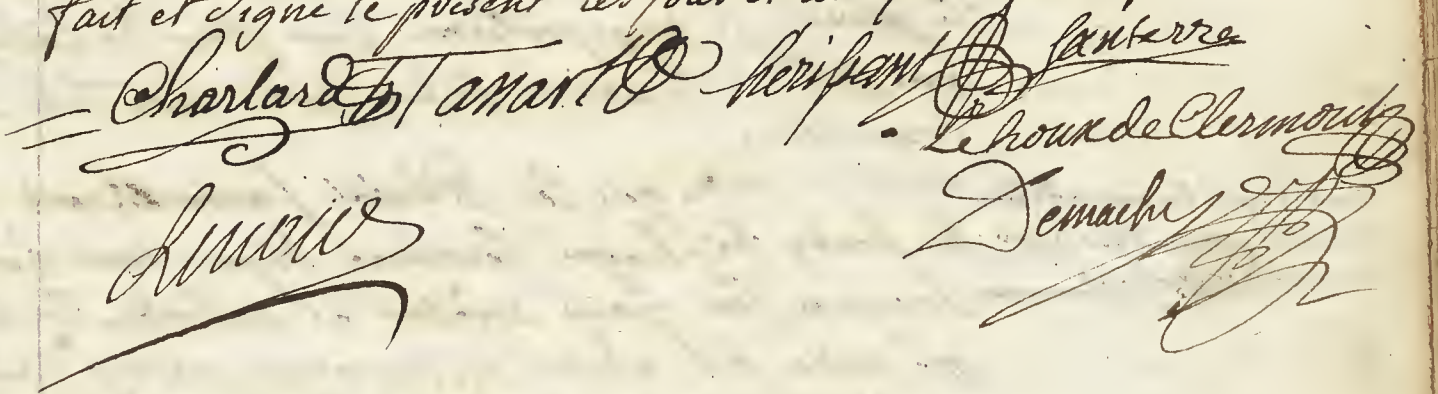 fait et signé le présent les jour et
Charlard Tassart hérissant santerre
Lehoux de Clermont
Demachy